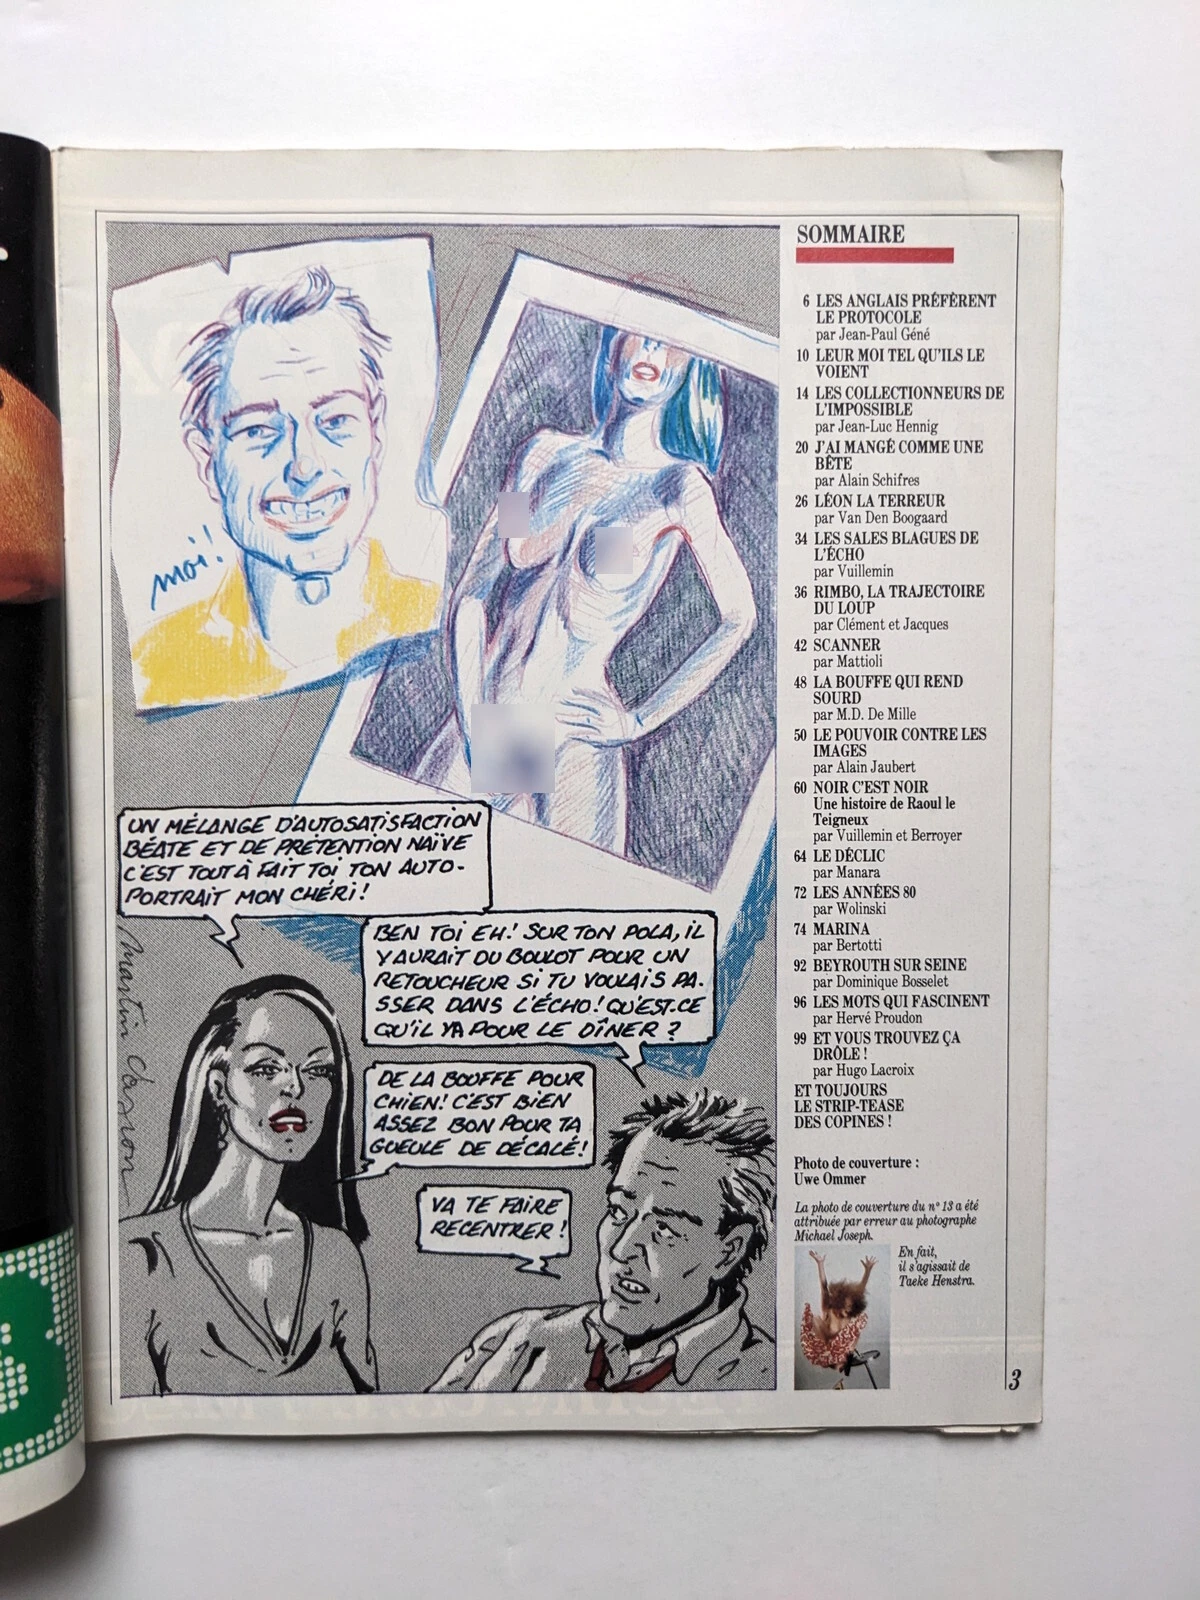 moi!
UN MÉLANGE D'AUTOSATISFACTION
BÉATE ET DE PRÉTENTION NAÏVE
C'EST TOUT À FAIT TOI TON AUTO-
PORTRAIT MON CHÉRI!
BEN TOI EH! SUR TON POLA, IL
Y AURAIT DU BOULOT POUR UN
RETOUCHEUR SI TU VOULAIS PA-
SSER DANS L'ÉCHO! QU'EST-CE
QU'IL YA POUR LE DÎNER ?
DE LA BOUFFE POUR
CHIEN! C'EST BIEN
ASSEZ BON POUR TA
GUEULE DE DÉCALÉ!
VA TE FAIRE
RECENTRER!
Martin
SOMMAIRE
6 LES ANGLAIS PRÉFÈRENT
LE PROTOCOLE
par Jean-Paul Géné
10 LEUR MOI TEL QU'ILS LE
VOIENT
14 LES COLLECTIONNEURS DE
L'IMPOSSIBLE
par Jean-Luc Hennig
20 J'AI MANGÉ COMME UNE
BÊTE
par Alain Schifres
26 LÉON LA TERREUR
par Van Den Boogaard
34 LES SALES BLAGUES DE
L'ÉCHO
par Vuillemin
36 RIMBO, LA TRAJECTOIRE
DU LOUP
par Clément et Jacques
42 SCANNER
par Mattioli
48 LA BOUFFE QUI REND
SOURD
par M.D. De Mille
50 LE POUVOIR CONTRE LES
IMAGES
par Alain Jaubert
60 NOIR C'EST NOIR
Une histoire de Raoul le
Teigneux
par Vuillemin et Berroyer
64 LE DÉCLIC
par Manara
72 LES ANNÉES 80
par Wolinski
74 MARINA
par Bertotti
92 BEYROUTH SUR SEINE
par Dominique Bosselet
96 LES MOTS QUI FASCINENT
par Hervé Proudon
99 ET VOUS TROUVEZ ÇA
DRÔLE !
par Hugo Lacroix
ET TOUJOURS
LE STRIP-TEASE
DES COPINES !
Photo de couverture :
Uwe Ommer
La photo de couverture du n° 13 a été
attribuée par erreur au photographe
Michael Joseph.
En fait,
il s'agissait de
Taeke Henstra.
3